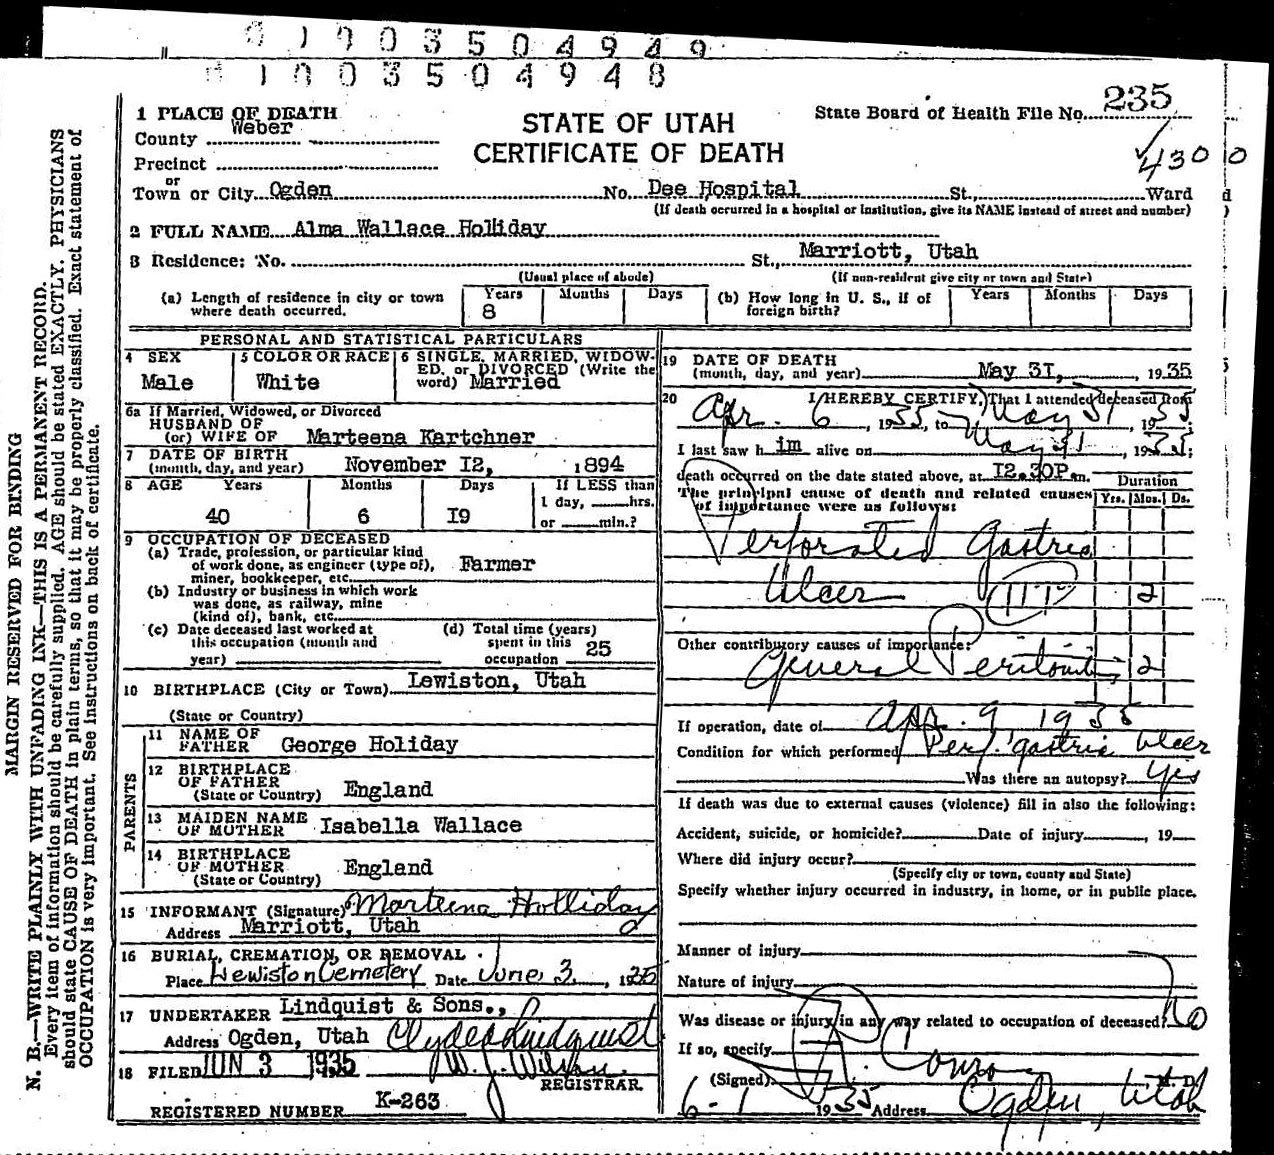 0 1 0 0 3 5 0 4 9 4 9
0 1 0 0 3 5 0 4 9 4 8
MARGIN RESERVED FOR BINDING
N. B.—WRITE PLAINLY WITH UNFADING INK—THIS IS A PERMANENT RECORD.
Every item of information should be carefully supplied. AGE should be stated EXACTLY. PHYSICIANS
should state CAUSE OF DEATH in plain terms, so that it may be properly classified. Exact statement of
OCCUPATION is very important. See instructions on back of certificate.
STATE OF UTAH
CERTIFICATE OF DEATH
State Board of Health File No. 235
430 0
1 PLACE OF DEATH
County Weber
Precinct
or
Town or City Ogden No. Dee Hospital St., Ward
(If death occurred in a hospital or institution, give its NAME instead of street and number)
2 FULL NAME Alma Wallace Holliday
3 Residence: No. St., Marriott, Utah
(Usual place of abode) (If non-resident give city or town and State)
(a) Length of residence in city or town where death occurred. Years 8 Months Days
(b) How long in U. S., if of foreign birth? Years Months Days
PERSONAL AND STATISTICAL PARTICULARS
4 SEX Male
5 COLOR OR RACE White
6 SINGLE, MARRIED, WIDOWED, or DIVORCED (Write the word) Married
6a If Married, Widowed, or Divorced
HUSBAND OF
(or) WIFE OF Marteena Kartchner
7 DATE OF BIRTH
(month, day, and year) November I2, 1894
8 AGE Years Months Days If LESS than
1 day, hrs.
40 6 I9 or min.?
9 OCCUPATION OF DECEASED
(a) Trade, profession, or particular kind
of work done, as engineer (type of),
miner, bookkeeper, etc. Farmer
(b) Industry or business in which work
was done, as railway, mine
(kind of), bank, etc.
(c) Date deceased last worked at
this occupation (month and
year)
(d) Total time (years)
spent in this
occupation 25
10 BIRTHPLACE (City or Town) Lewiston, Utah
(State or Country)
PARENTS
11 NAME OF
FATHER George Holiday
12 BIRTHPLACE
OF FATHER
(State or Country) England
13 MAIDEN NAME
OF MOTHER Isabella Wallace
14 BIRTHPLACE
OF MOTHER
(State or Country) England
15 INFORMANT (Signature) Marteena Holliday
Address Marriott, Utah
16 BURIAL, CREMATION, OR REMOVAL
Place Lewiston Cemetery Date June 3, 1935
17 UNDERTAKER Lindquist & Sons.,
Address Ogden, Utah Clyde Lindquist
18 FILED JUN 3 1935 W. J. Wilson
REGISTRAR
REGISTERED NUMBER K-263
19 DATE OF DEATH
(month, day, and year) May 3I, , 1935
20 I HEREBY CERTIFY, That I attended deceased from
Apr. 6, 1935, to May 31, 1935
I last saw h im alive on May 31, 1935;
death occurred on the date stated above, at I2.30P.m.
The principal cause of death and related causes
of importance were as follows:
Duration
Yrs. Mos. Ds.
Perforated Gastric
Ulcer 2
Other contributory causes of importance:
General Peritonitis 2
If operation, date of Apr. 9 1935
Condition for which performed Perf. gastric Ulcer
Was there an autopsy? Yes
If death was due to external causes (violence) fill in also the following:
Accident, suicide, or homicide? Date of injury , 19
Where did injury occur?
(Specify city or town, county and State)
Specify whether injury occurred in industry, in home, or in public place.
Manner of injury
Nature of injury
Was disease or injury in any way related to occupation of deceased? No
If so, specify
(Signed) M. D.
6-1 1935 Address Ogden, Utah